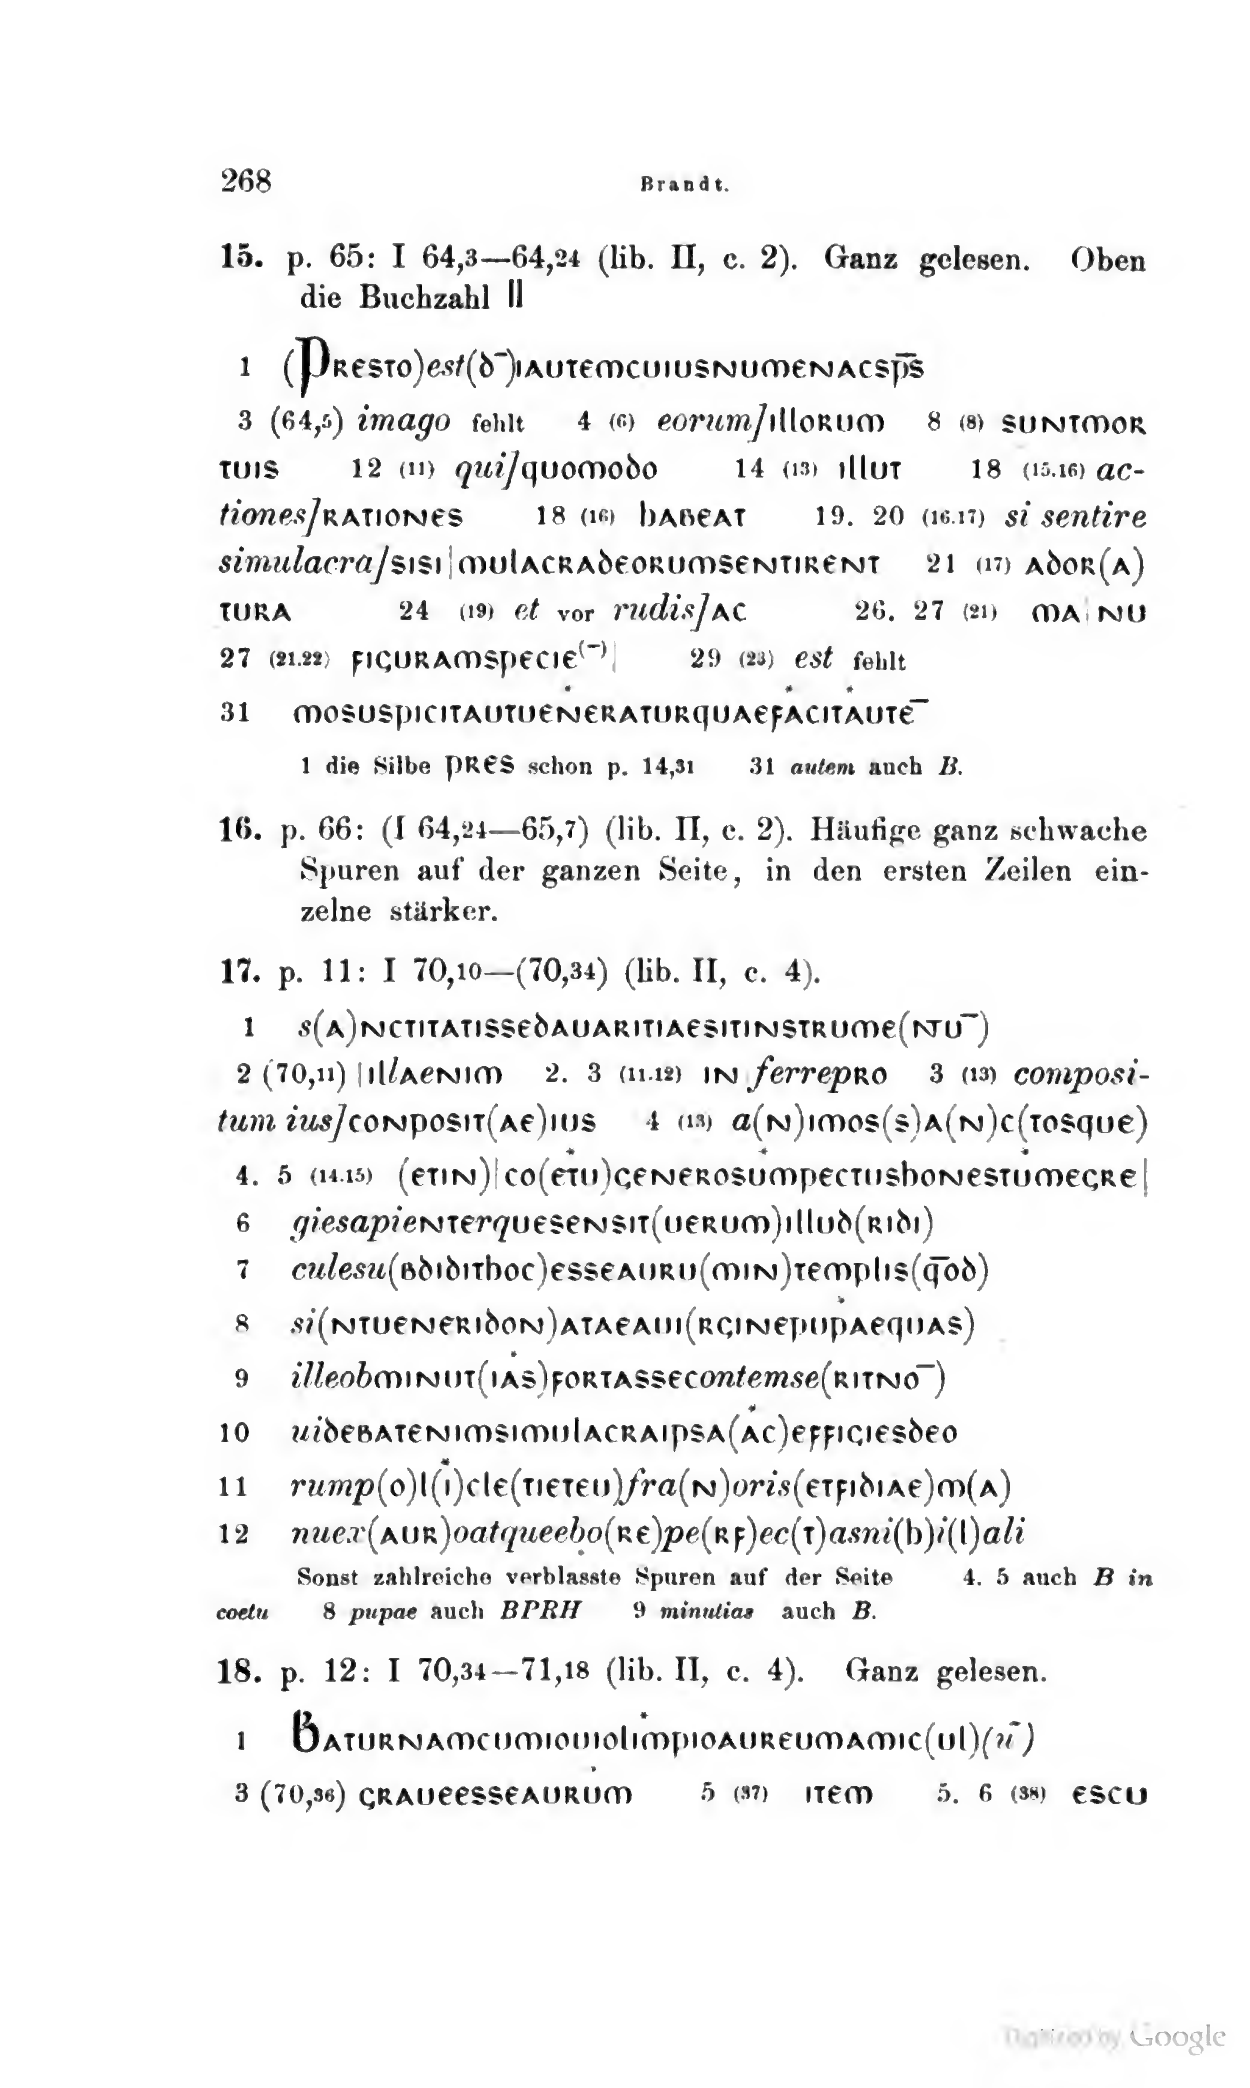 268 Brandt.
15. p. 65: I 64,3—64,24 (lib. II, c. 2). Ganz gelesen. Oben
die Buchzahl II
1 (PRESTO)est(d¯)IAUTEMCUIUSNUMENACSPS̄
3 (64,5) imago fehlt 4 (6) eorum]ILLORUM 8 (8) SUNTMOR
TUIS 12 (11) qui]QUOMODO 14 (13) ILLUT 18 (15.16) ac-
tiones]RATIONES 18 (16) HABEAT 19. 20 (16.17) si sentire
simulacra]SISI|MULACRADEORUMSENTIRENT 21 (17) ADOR(A)
TURA 24 (19) et vor rudis]AC 26. 27 (21) MA|NU
27 (21.22) FIGURAMSPECIE(¯)| 29 (23) est fehlt
31 MOSUSPICITAUTUEṄERATURQUAEFȦCITȦUTE¯
1 die Silbe PRES schon p. 14,31 31 autem auch B.
16. p. 66: (I 64,24—65,7) (lib. II, c. 2). Häufige ganz schwache
Spuren auf der ganzen Seite, in den ersten Zeilen ein-
zelne stärker.
17. p. 11: I 70,10—(70,34) (lib. II, c. 4).
1 s(A)NCTITATISSEDAUARITIAESITINSTRUME(NTU¯)
2 (70,11) |ILlAENIM 2. 3 (11.12) IN ferrepRO 3 (13) composi-
tum ius]CONPOSIT(AE)IUS 4 (13) a(N)IMOS(S)A(N)C(TOSQUE)
4. 5 (14.15) (ETIN)|CO(EṪU)GENEROSU̇MPECTUSHONESTU̇MEGRE|
6 giesapieNTerqUESENSIT(UERUM)ILLUD(RIDI)
7 culesu(BDIDITHOC)ESSEAURU(MIN)TEMPLIS(Q̄OD)
8 si(NTUENERIDON)ATAEAUI(RGINEPUṖAEQUAS)
9 illeobMINUT(IȦS)FORTASSEcontemse(RITNO¯)
10 uiDEBATENIMSIMULACRAIPSA(ȦC)EFFIGIESDEO
11 rump(O)L(İ)CLE(TIETEU)fra(N)oris(ETFIDIAE)M(A)
12 nuex(AUR)oatqueebo(RE)pe(RF)ec(T)asni(H)i(L)ali
Sonst zahlreiche verblasste Spuren auf der Seite 4. 5 auch B in
coetu 8 pupae auch BPRH 9 minutias auch B.
18. p. 12: I 70,34—71,18 (lib. II, c. 4). Ganz gelesen.
1 BATURNAMCUMIOUIOLIṀPIOAUREUMAMIC(UL)(ū)
3 (70,36) GRAUEESSEAURU̇M 5 (37) ITEM 5. 6 (38) ESCU
Digitized by Google